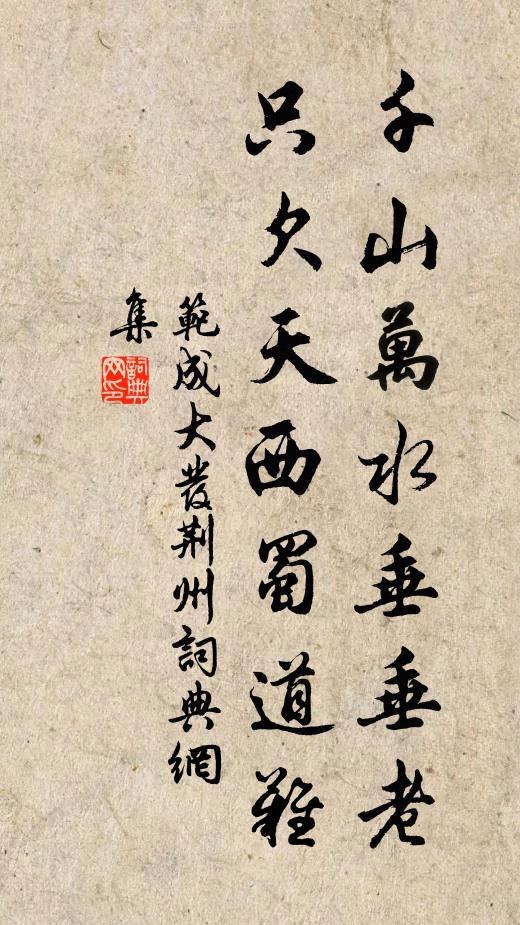 千山萬水垂垂老
只欠天西蜀道難
範成大發荆州詞典網
集
詞典
网印